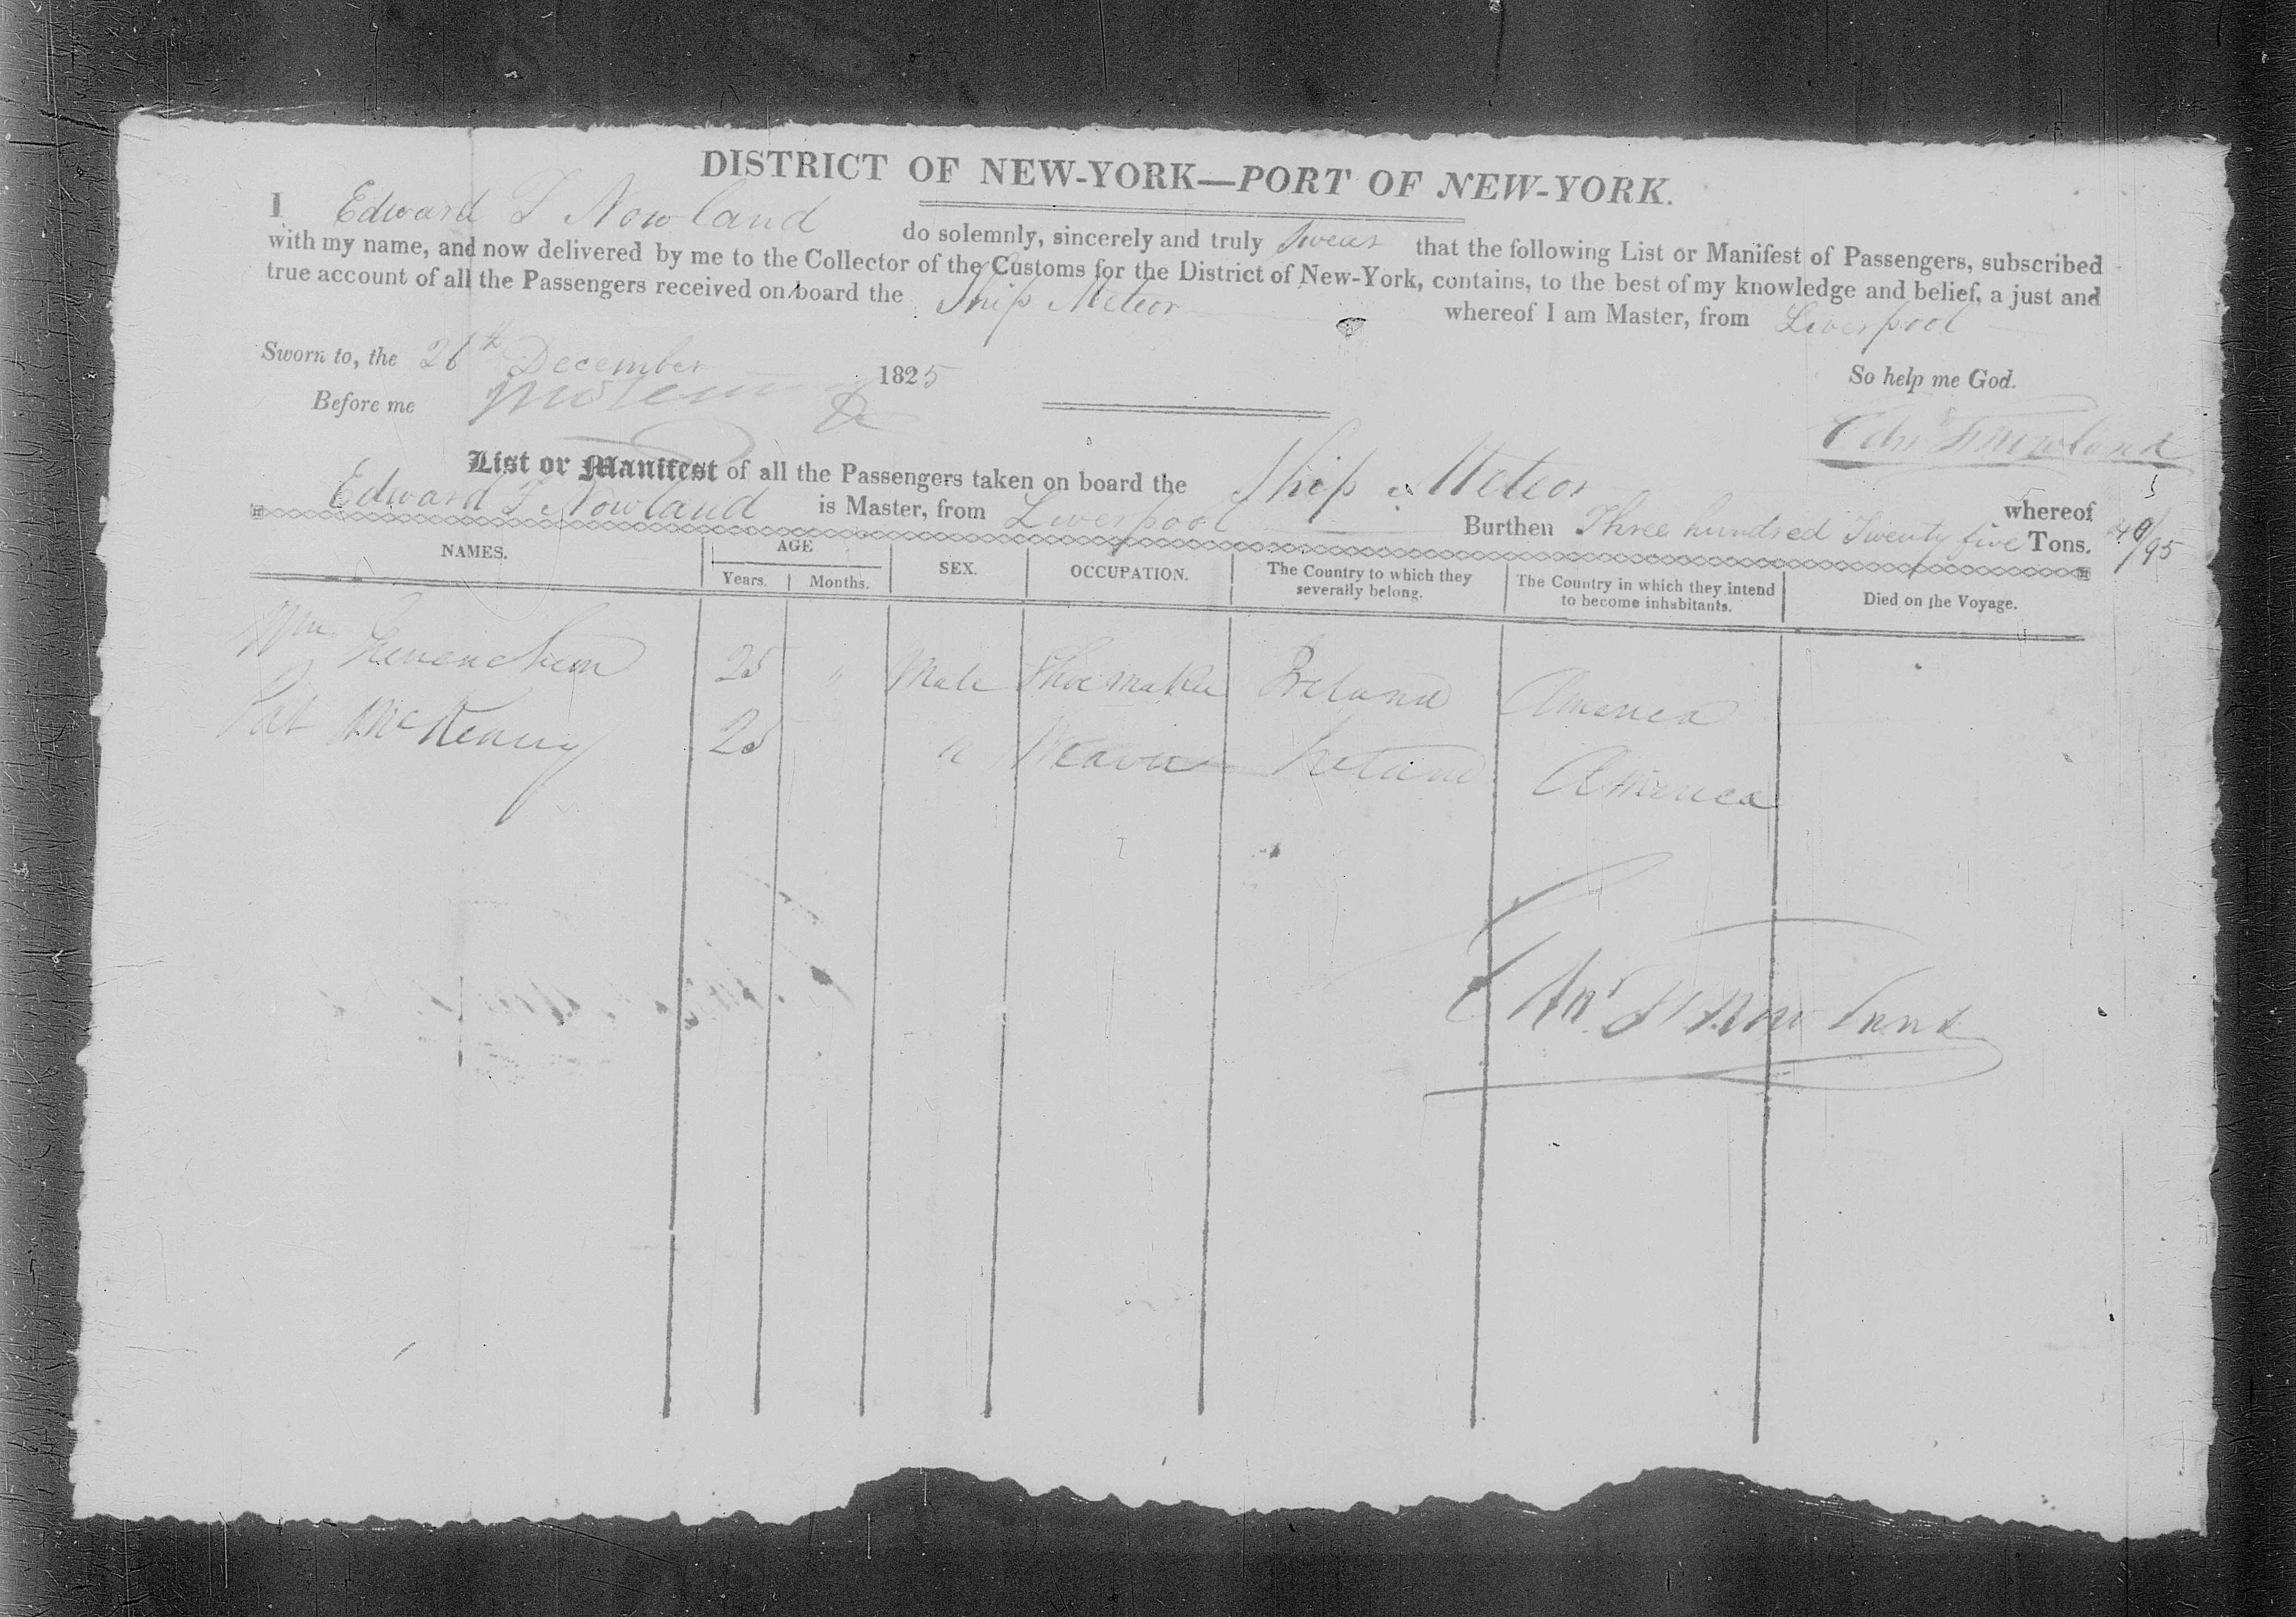 DISTRICT OF NEW-YORK—PORT OF NEW-YORK.
I Edward T Nowland do solemnly, sincerely and truly swear that the following List or Manifest of Passengers, subscribed
with my name, and now delivered by me to the Collector of the Customs for the District of New-York, contains, to the best of my knowledge and belief, a just and
true account of all the Passengers received on board the Ship Meteor whereof I am Master, from Liverpool
Sworn to, the 26th December 1825 So help me God.
Before me
List or Manifest of all the Passengers taken on board the Ship Meteor whereof
Edward T Nowland is Master, from Liverpool Burthen Three hundred Twenty five Tons. /95
NAMES. AGE SEX. OCCUPATION. The Country to which they severally belong. The Country in which they intend to become inhabitants. Died on the Voyage.
Years. Months.
Wm 25 " Male Shoe maker Ireland America
Pat McKenny 25 " Weaver Ireland America